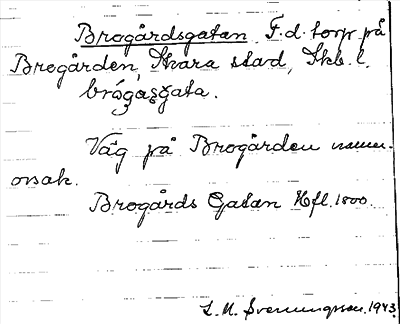 Brogårdsgatan F.d. torp på
Brogården, Skara stad, Skb. l.
brógaʂgata.
Väg på Brogården namn-
orsak.
Brogårds Gatan Hfl. 1800.
L. M. Svenungsson. 1943.